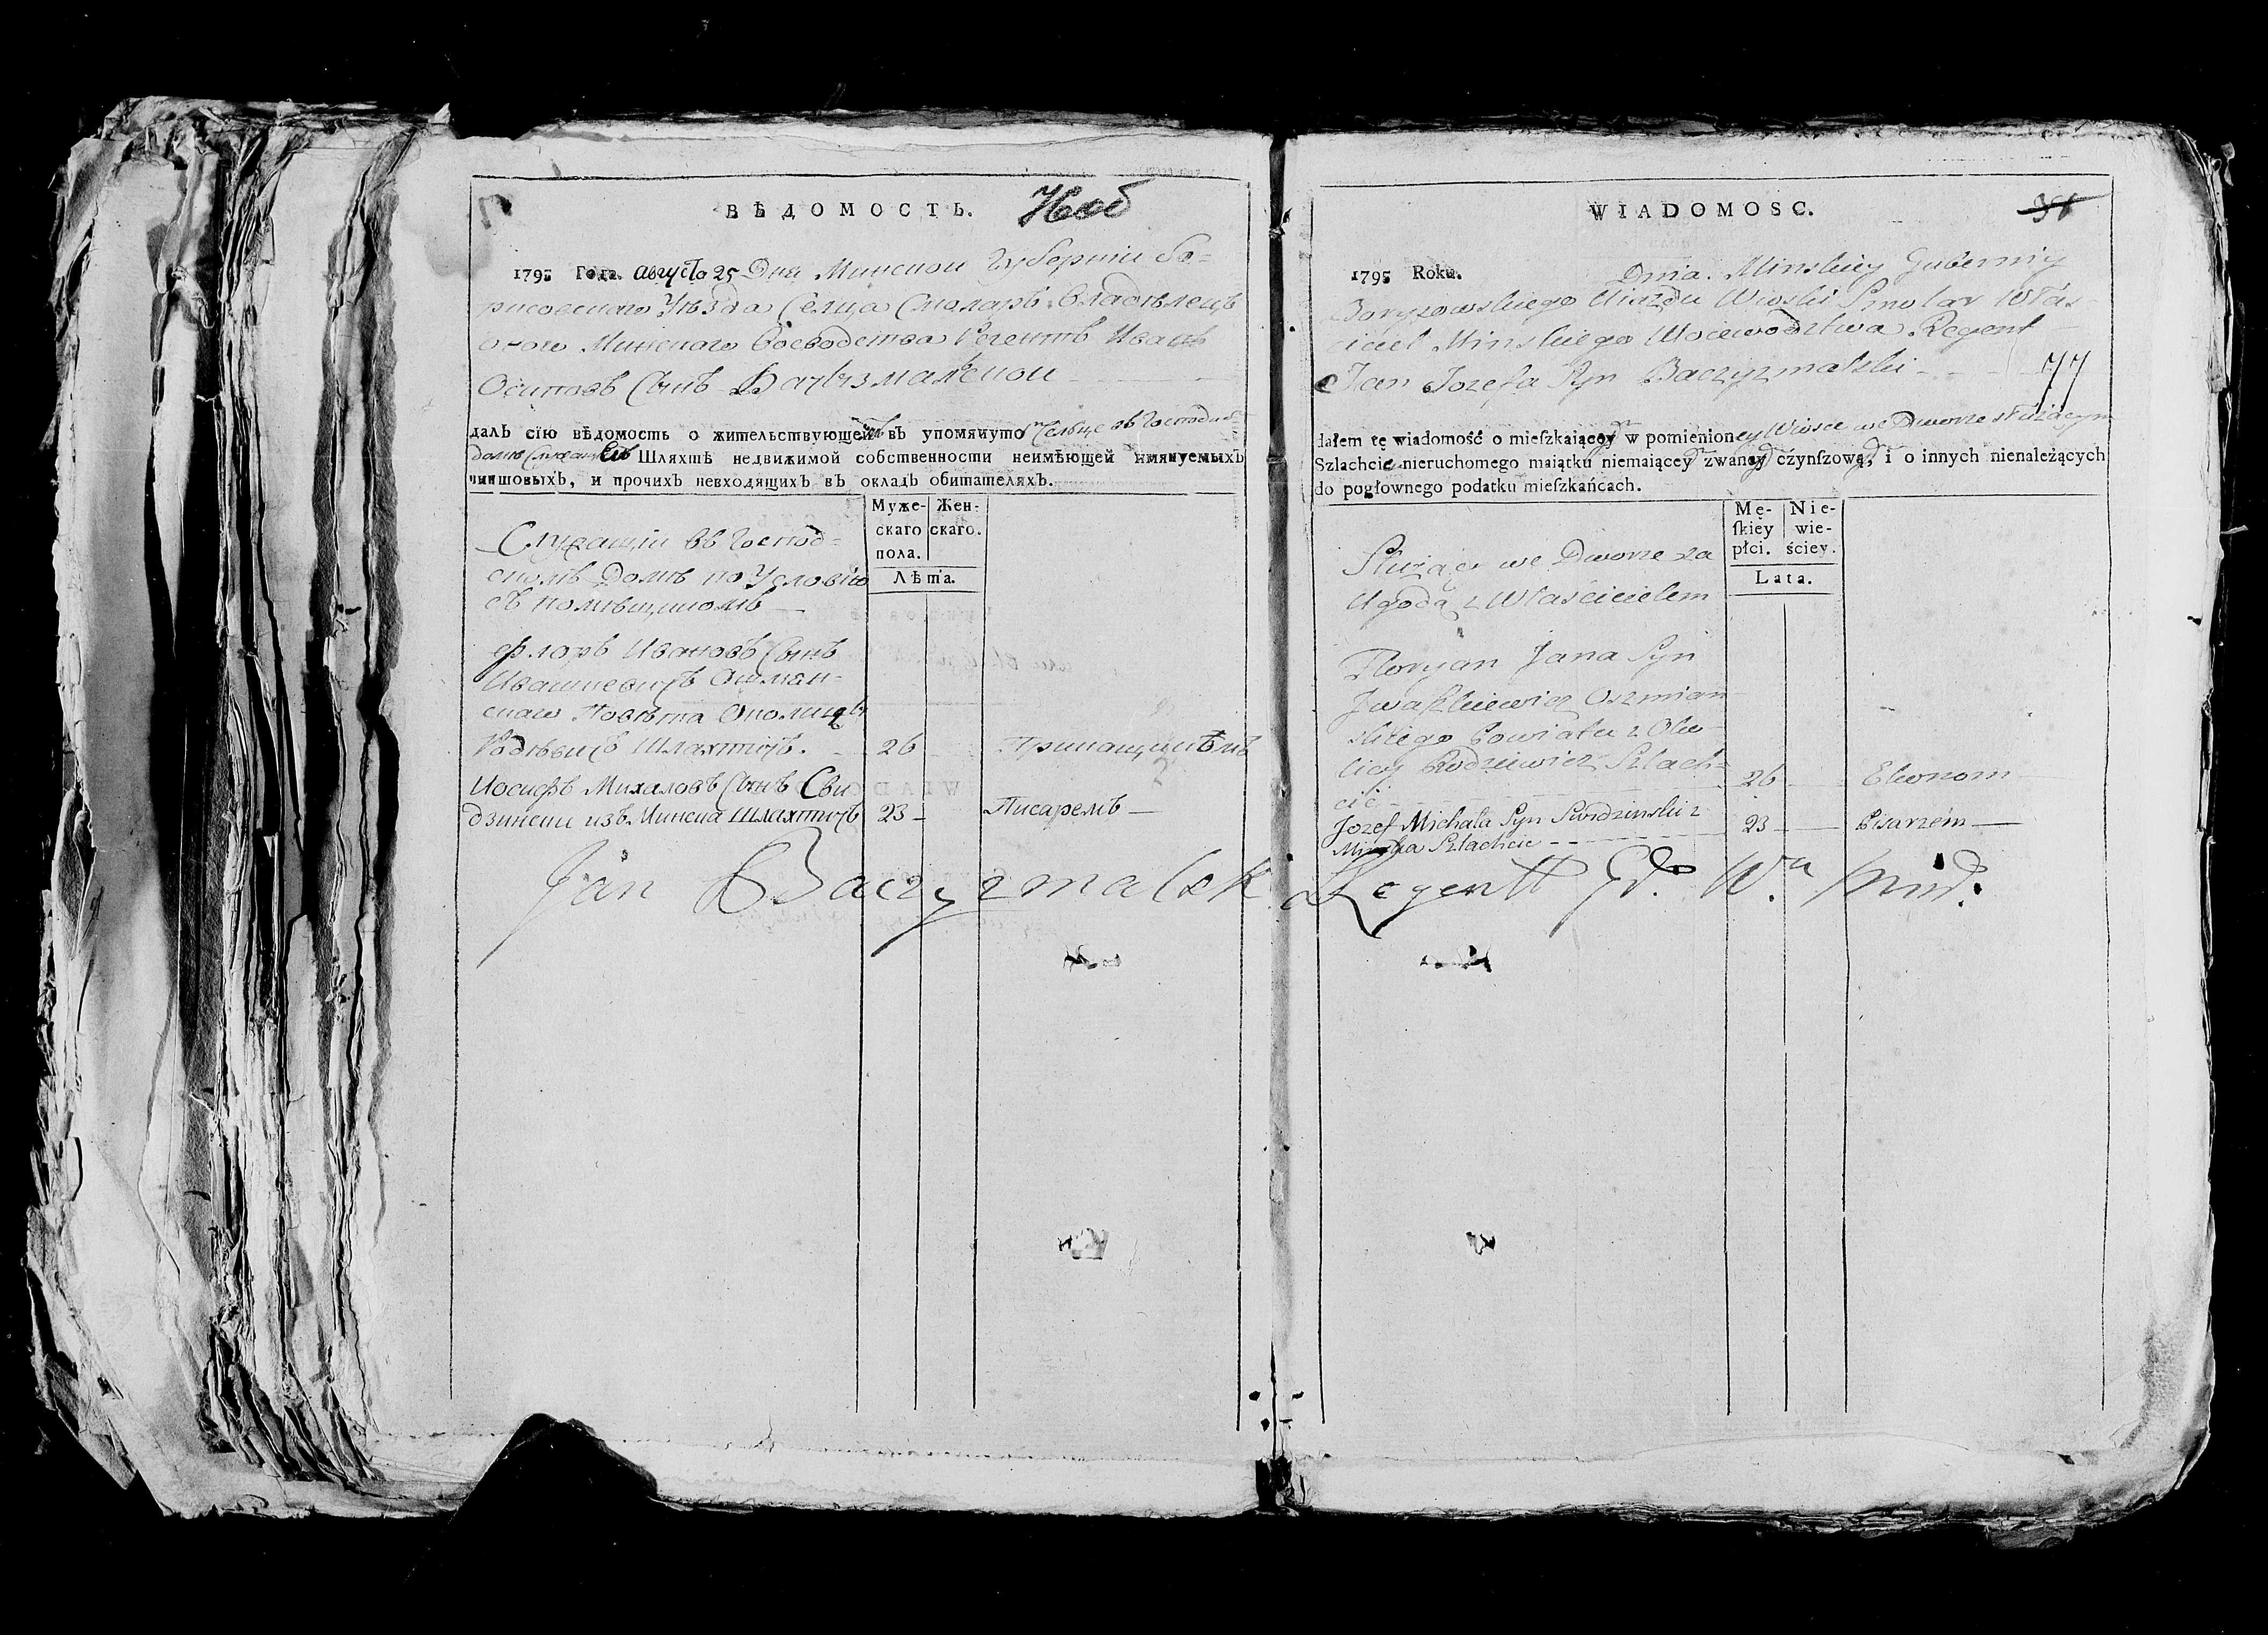 ВѢДОМОСТЬ.
1795 Года. августа 25 Дня Минской Губернiи Бо-
рисовскаго Уѣзда Селца Смоларъ владѣлецъ
онаго Минскаго Воеводства Регентъ Иванъ
Осиповъ Сынъ Бачызмальской
далъ сїю вѣдомость о жительствующей въ упомянуто Сельце въ Господск
домѣ Шляхтѣ недвижимой собственности неимѣющей имянуемыхъ
чиншовыхъ, и прочихъ невходящихъ въ окладъ обитателяхъ.
Муже- Жен-
скаго скаго.
пола.
Лѣта.
Служащiи въ Господ-
скомъ Домѣ по Условiю
съ помѣщикомъ
Флоръ Ивановъ Сынъ
Ивашкевичъ Ошмян-
скаго Повѣта Околицы
Родзевичъ Шляхтичъ. 26
Иосифъ Михаловъ Сынъ Сви
дзински изъ Минска Шляхтичъ 23 - Писаремъ —
Jan Baczyzmalsk Regentt Gd. Wa Mid.
WIADOMOSC.
1795 Roku. Dnia. Minskiey Guberniy
Boryzowskiego Uiazdu Wioski Smolar Włas-
ciciel Minskiego Woiewodztwa Regent
Jan Jozefa Syn Baczyzmalski
77
dałem tę wiadomość o mieſzkaiącey w pomienioney Wiosce we Dworze służącym
Szlachcie nieruchomego maiątku niemaiącey zwaney czynſzową, i o innych nienależących
do pogłownego podatku mieſzkańcach.
Mę- Nie-
ſkiey wie-
płci. ściey.
Lata.
Służący we Dworze za
Ugodą z Właścicielem
Floryan Jana Syn
Jwaszkiewicz Oszmian
skiego Powiatu z Oko-
licy Rodziewicz Szlach-
cic - 26 Ekonom
Jozef Michała Syn Swidzinski z 23 - Pisarzem —
Minska Szlachcic - -